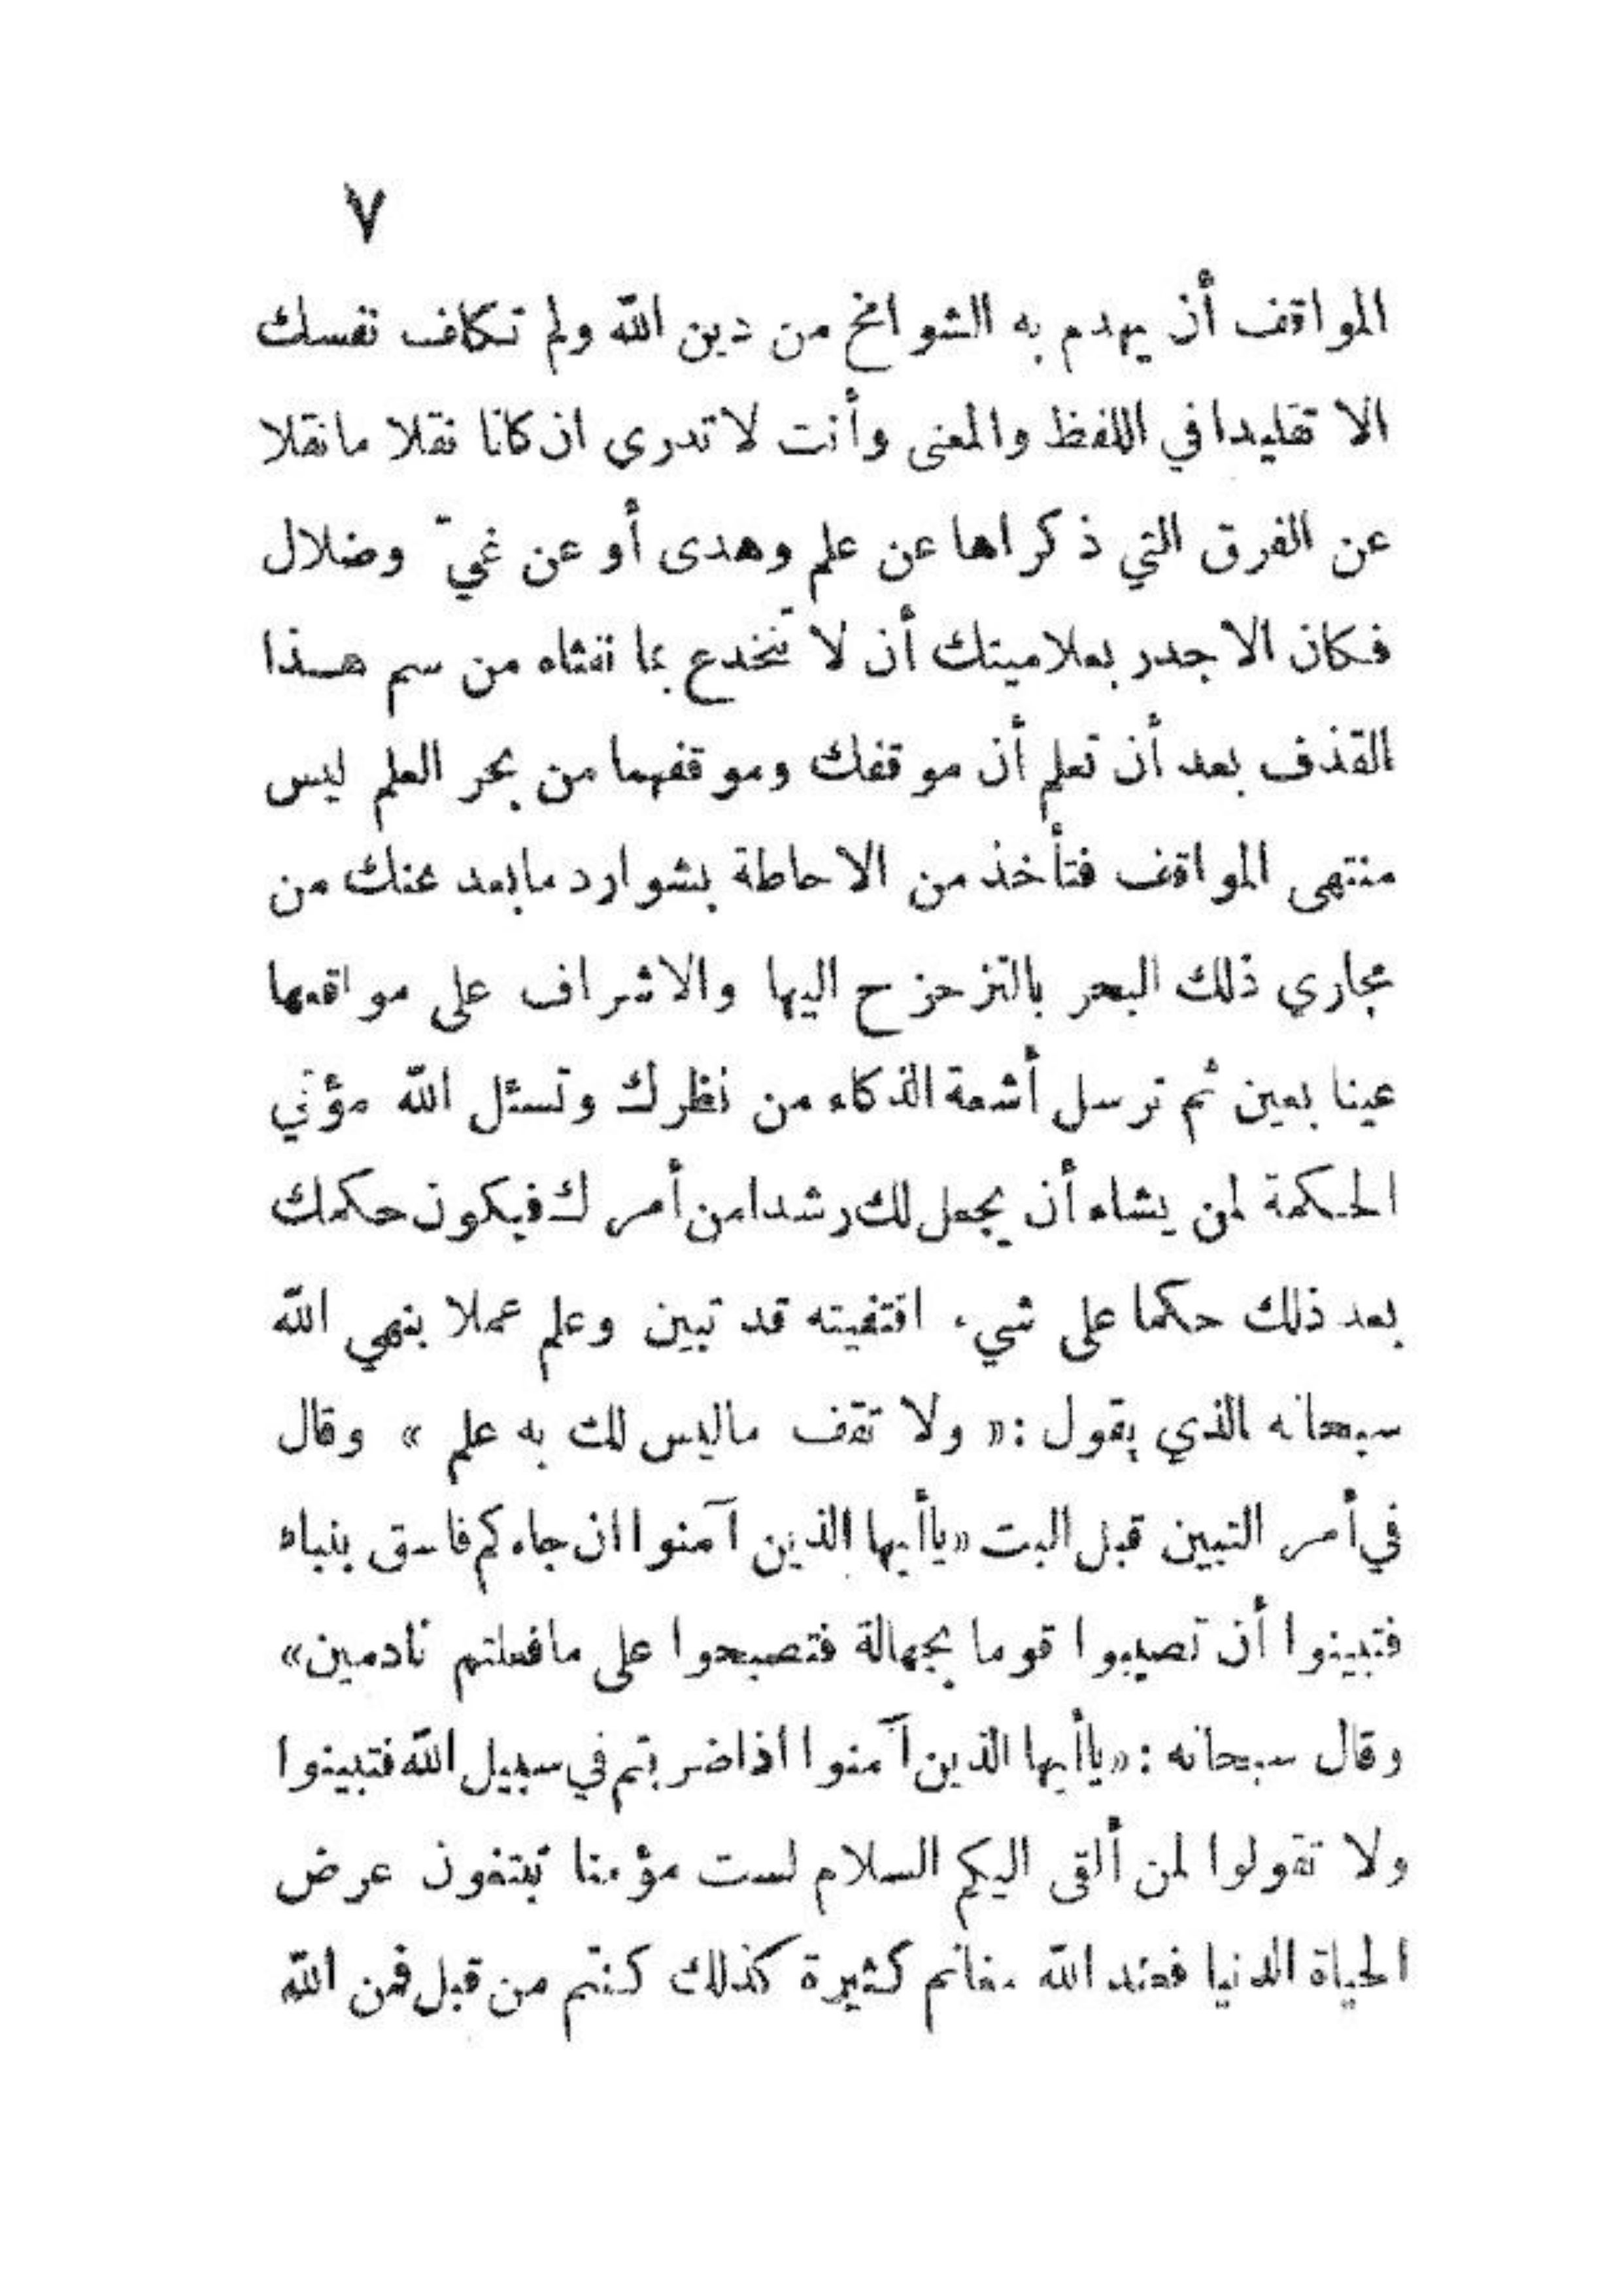 ٧
المواقف أن يهدم به الشوامخ من دين الله ولم تكلف نفسك
الا تقليدا في اللفظ والمعنى وأنت لا تدري ان كانا نقلا ما نقلا
عن الفرق التي ذكراها عن علم وهدى أو عن غيّ وضلال
فكان الاجدر بعلاميتك أن لا تنخدع بما نفثاه من سم هذا
القذف بعد أن تعلم أن موقفك وموقفهما من بحر العلم ليس
منتهى المواقف فتأخذ من الاحاطة بشوارد ما بعد عنك من
مجاري ذلك البحر بالتزحزح اليها والاشراف على مواقعها
عينا بعين ثم ترسل أشعة الذكاء من نظرك وتسئل الله مؤتي
الحكمة لمن يشاء أن يجعل لك رشدا من أمرك فيكون حكمك
بعد ذلك حكما على شيء اقتفيته قد تبين وعلم عملا بنهي الله
سبحانه الذي يقول : « ولا تقف ما ليس لك به علم » وقال
في أمر التبين قبل البت « يا أيها الذين آمنوا ان جاءكم فاسق بنباء
فتبينوا أن تصيبوا قوما بجهالة فتصبحوا على ما فعلتم نادمين »
وقال سبحانه : « يا أيها الذين آمنوا اذا ضربتم في سبيل الله فتبينوا
ولا تقولوا لمن ألقى اليكم السلام لست مؤمنا تبتغون عرض
الحياة الدنيا فعند الله مغانم كثيرة كذلك كنتم من قبل فمن الله